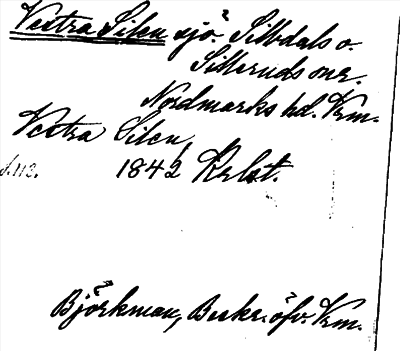 Vestra Silen sjö. Sillbdals o.
Silleruds snr.
Nordmarks hd. Vrm.
Vestra Silen,
s. 113. 1842 Krlst.
Björkman, Beskr. öfv. Vrm.